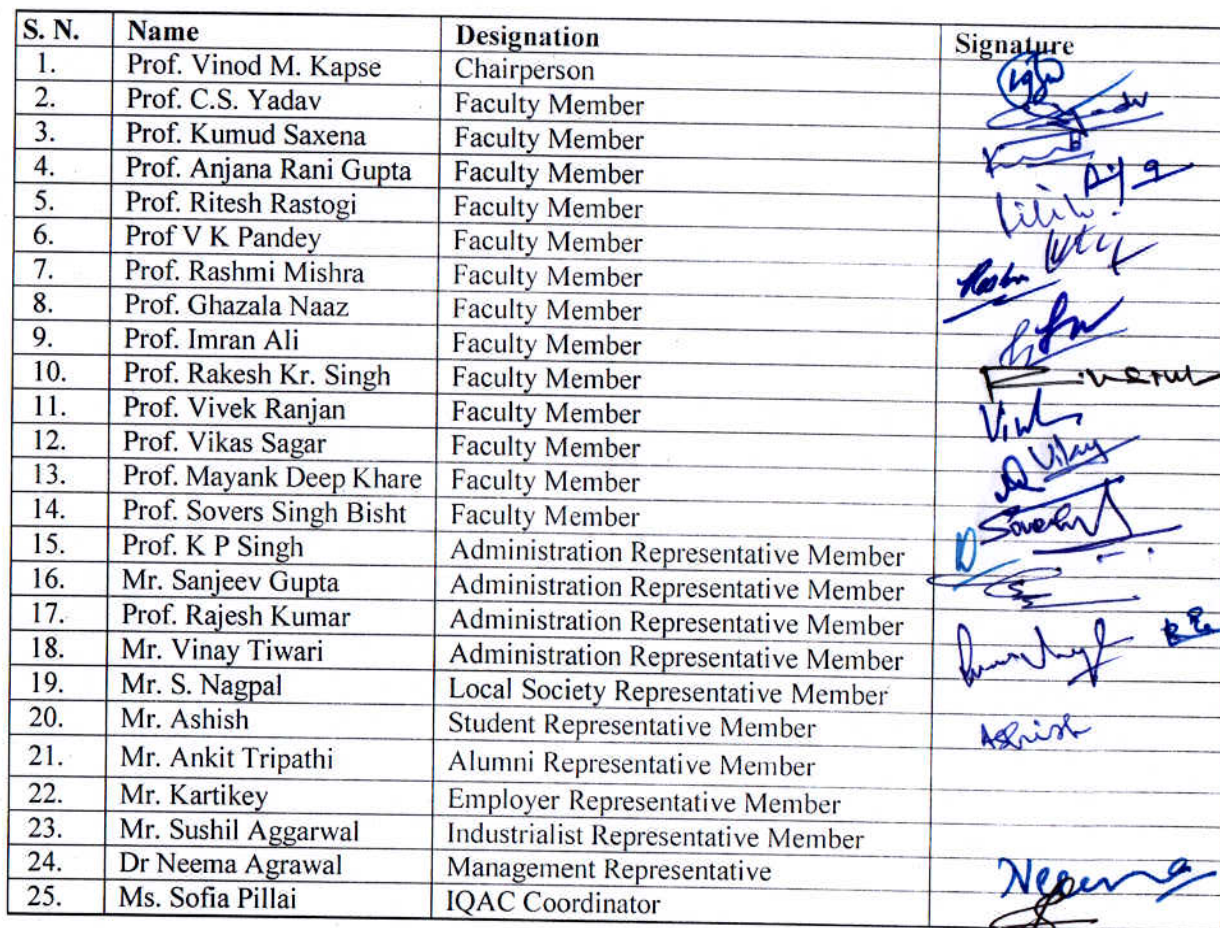 S. N. Name Designation Signature
1. Prof. Vinod M. Kapse Chairperson
2. Prof. C.S. Yadav Faculty Member
3. Prof. Kumud Saxena Faculty Member
4. Prof. Anjana Rani Gupta Faculty Member
5. Prof. Ritesh Rastogi Faculty Member
6. Prof V K Pandey Faculty Member
7. Prof. Rashmi Mishra Faculty Member
8. Prof. Ghazala Naaz Faculty Member
9. Prof. Imran Ali Faculty Member
10. Prof. Rakesh Kr. Singh Faculty Member
11. Prof. Vivek Ranjan Faculty Member
12. Prof. Vikas Sagar Faculty Member
13. Prof. Mayank Deep Khare Faculty Member
14. Prof. Sovers Singh Bisht Faculty Member
15. Prof. K P Singh Administration Representative Member
16. Mr. Sanjeev Gupta Administration Representative Member
17. Prof. Rajesh Kumar Administration Representative Member
18. Mr. Vinay Tiwari Administration Representative Member
19. Mr. S. Nagpal Local Society Representative Member
20. Mr. Ashish Student Representative Member Ashish
21. Mr. Ankit Tripathi Alumni Representative Member
22. Mr. Kartikey Employer Representative Member
23. Mr. Sushil Aggarwal Industrialist Representative Member
24. Dr Neema Agrawal Management Representative Neema
25. Ms. Sofia Pillai IQAC Coordinator